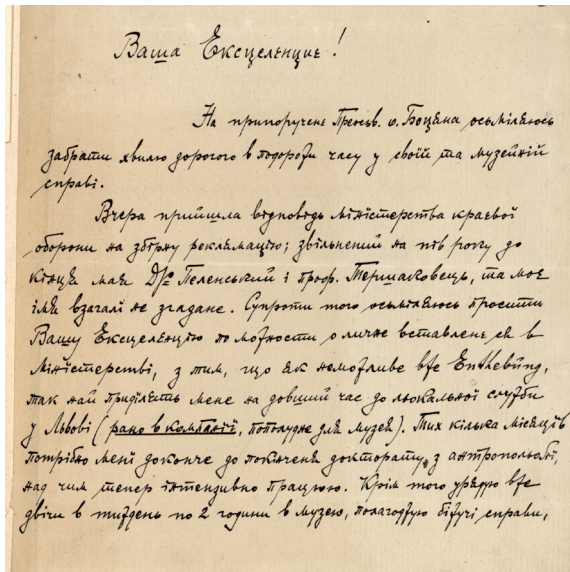 Ваша Ексцеленціє!
На припоручене Преосв. о. Боцяна осьміляюсь
забрати хвилю дорогого в подорожи часу у своїй та музейній
справі.
Вчера прийшла відповідь Міністерства краєвої
оборони на збірну реклямацію; звільнений на пів року до
кінця мая Др Пеленський і проф. Тершаковець, та моє
імя взагалі не згадане. Супроти того осьміляюсь просити
Вашу Ексцеленцію по можности о личне вставленє ся в
Міністерстві, з тим, що як неможливе вже Enthebung,
так най приділять мене на довший час до льокальної служби
у Львові (рано в компанії, пополудне для музея). Тих кілька місяців
потрібно мені доконче до покінченя докторату з антропольоґії,
над чим тепер інтензивно працюю. Крім того урядую вже
двічи в тиждень по 2 години в музею, полагоджую біжучі справи,